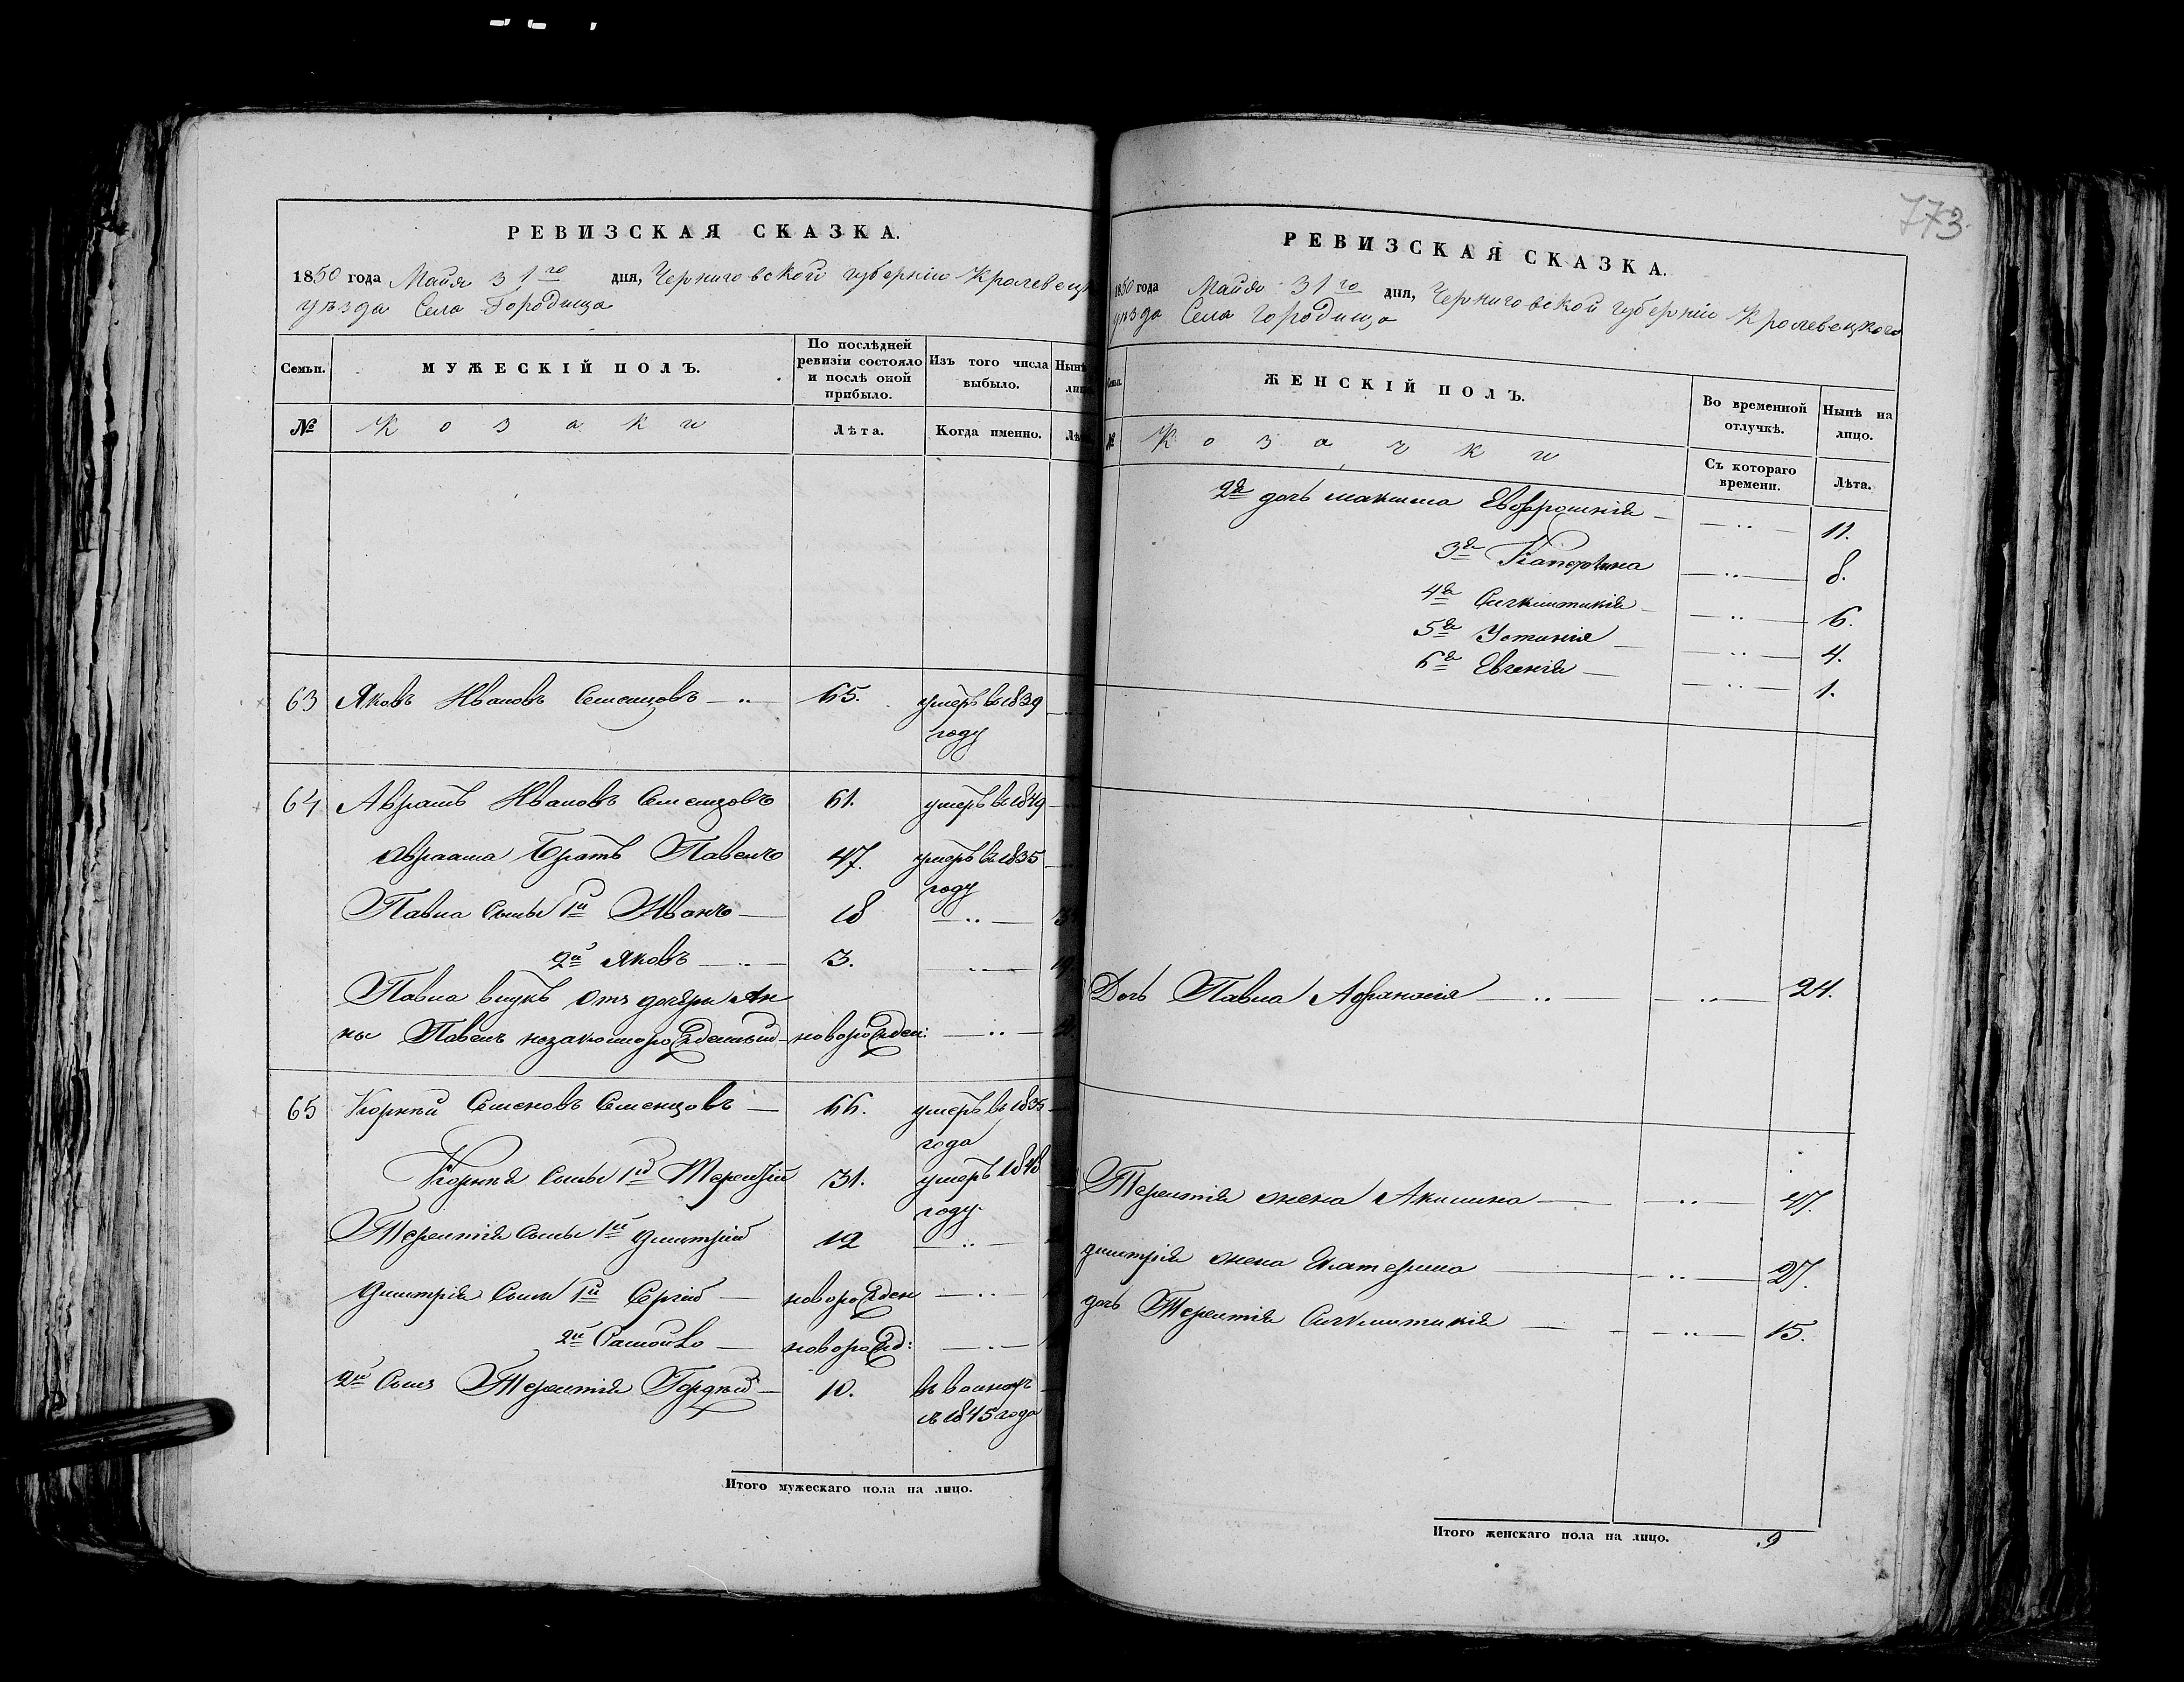 РЕВИЗСКАЯ СКАЗКА.
1850 года Майя 31го дня, Черниговской губерніи Кролевец
уѣзда Села Городища
Семьи.
МУЖЕСКІЙ ПОЛЪ.
По послѣдней ревизіи состояло и послѣ оной прибыло.
Изъ того числа выбыло.
Нынѣ
№
Козаки
Лѣта.
Когда именно.
63 Яковъ Ивановъ Семенцовъ — 65. умеръ въ 1839
году
64 Аврамъ Ивановъ Семенцовъ 61. умеръ въ 1849
Авраама Братъ Павелъ 47. умеръ въ 1835
году
Павла Сыны 1й Иванъ — 18 — „ —
2й Яковъ — 3. — „ —
Павла внукъ Отъ дочери Ан
ны Павелъ незаконнорожденный — новорожден: — „ —
65 Корній Семеновъ Семенцовъ — 66. умеръ въ 1835
года
Корнія Сыны 1й Терентій 31. умеръ 1848
году.
Терентія Сыны 1й Дмитрій 12 — „ —
Дмитрія Сыны 1й Сергій — новорожден — „ —
2й — новорожд: — „ —
2й Сынъ Терентія Гордѣй — 10. въ
съ 1845 года
Итого мужескаго пола на лицо.
773
РЕВИЗСКАЯ СКАЗКА.
1850 года Майя 31го дня, Черниговской губерніи Кролевецкого
уѣзда Села Городища
ЖЕНСКІЙ ПОЛЪ.
Во временной отлучкѣ.
Нынѣ на лицо.
№
Козачки
Съ котораго времени.
Лѣта.
2я дочь Максима Евфросинія — — „ — 11.
3я Катерина — „ — 8.
4я Сиклитикія — — „ — 6.
5я Устинія — — „ — 4.
6я Евгенія — — „ — 1.
Дочь Павла Афанасія — „ — — „ — 24.
Терентія жена Акилина — — „ — 47.
Дмитрія жена Екатерина — — „ — 27.
дочь Терентія Сиклитикія — — „ — 15.
Итого женскаго пола на лицо. 9